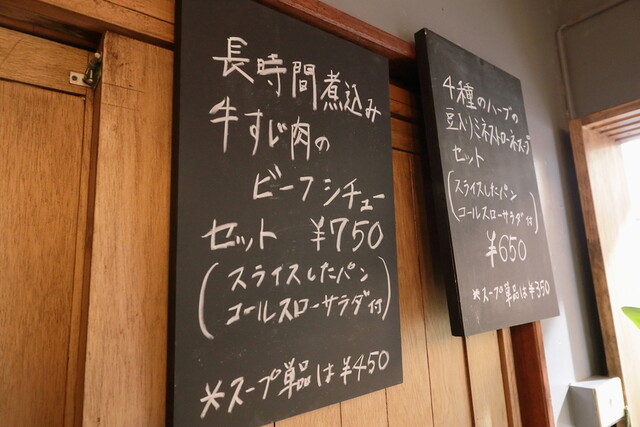 長時間煮込み
牛すじ肉の
ビーフシチュー
セット ¥750
(スライスしたパン
コールスローサラダ付)
*スープ単品は¥450
4種のハーブの
豆入りミネストローネスープ
セット
(スライスしたパン
コールスローサラダ付)
¥650
*スープ単品は¥350